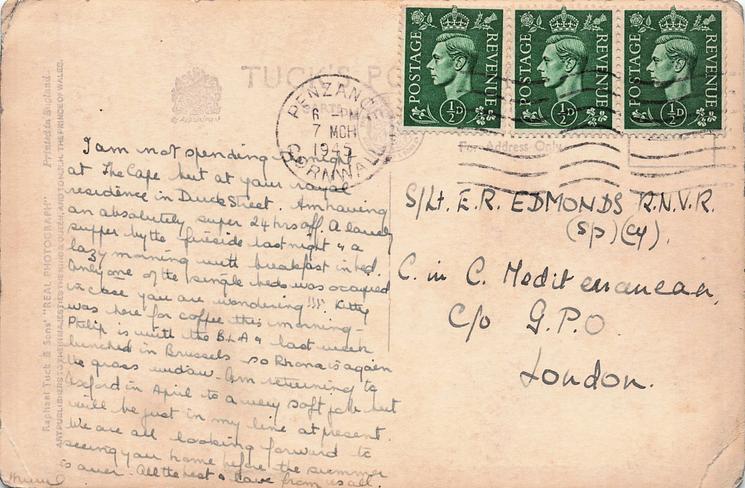 POSTAGE REVENUE ½D
POSTAGE REVENUE ½D
POSTAGE REVENUE ½D
TUCK'S PO
PENZANCE
6 - PM
7 MCH
1945
CORNWALL
For Address Only
I am not spending tonight
at The Cape but at your royal
residence in Duck Street. Am having
an absolutely super 24 hrs off. A lovely
supper by the fireside last night & a
lazy morning with breakfast in bed.
Only one of the single beds was occupied
in case you are wondering!!!! Kitty
was here for coffee this morning -
Philip is with the B.L.A & last week
lunched in Brussels so Rhona is again
the grass widow. Am returning to
Oxford in April to a very soft job but
will be just in my line at present.
We are all looking forward to
seeing you home before the summer
is over. All the best & love from us all.
S/Lt. E.R. EDMONDS R.N.V.R.
(Sp)(Cy).
C. in C. Mediterranean,
C/o G.P.O.
London.
Raphael Tuck & Sons' "REAL PHOTOGRAPH" Printed in England
ART PUBLISHERS TO THEIR MAJESTIES THE KING & QUEEN, AND TO H.R.H. THE PRINCE OF WALES.